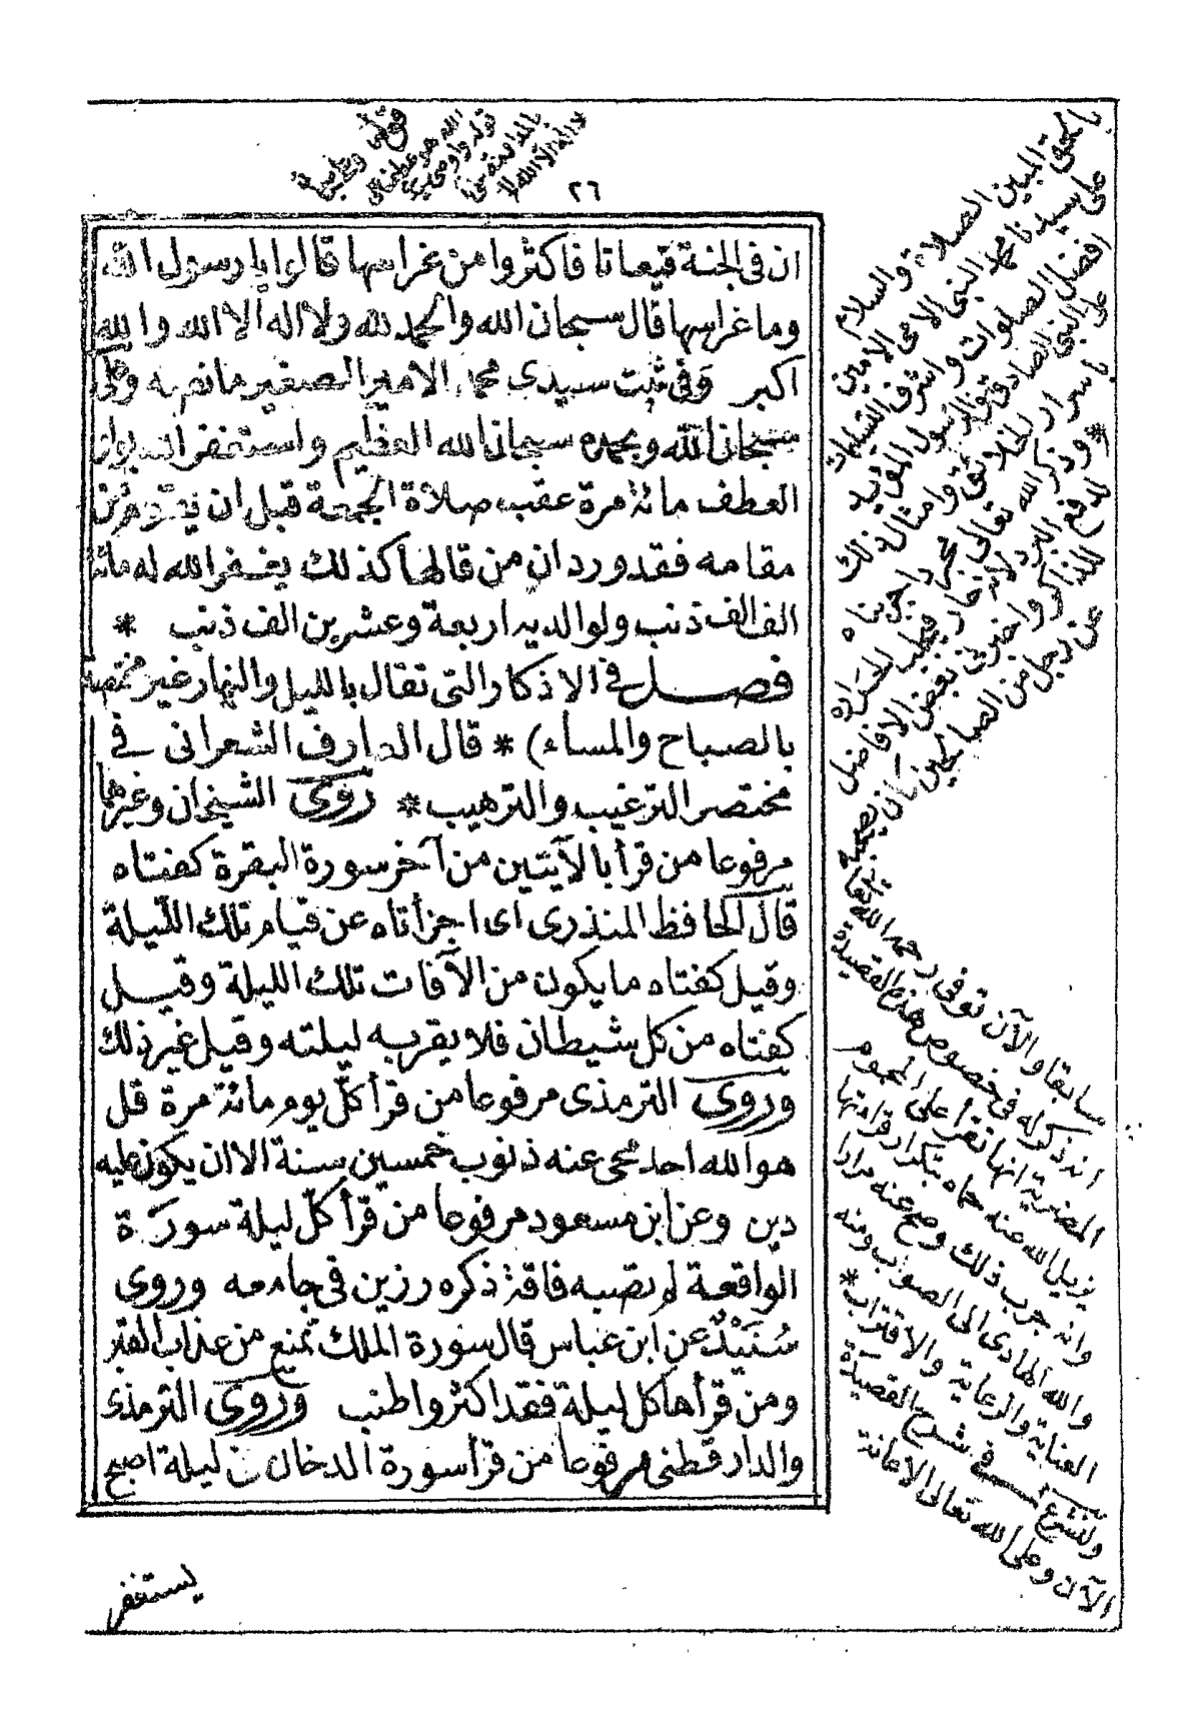 ٢٦
ان في الجنة قيعانا فاكثروا من غراسها قالوا يا رسول الله
وما غراسها قال سبحان الله والحمد لله ولا اله الا الله والله
اكبر وفي ثبت سيدي محمد الامير الصغير ما نصه وقل
سبحان الله وبحمده سبحان الله العظيم واستغفر الله بواو
العطف مائة مرة عقب صلاة الجمعة قبل ان يقوم من
مقامه فقد ورد ان من قالها كذلك يغفر الله له مائة
الف الف ذنب ولوالديه اربعة وعشرين الف ذنب *
فصل في الاذكار التي تقال بالليل والنهار غير مختصة
بالصباح والمساء) * قال العارف الشعراني في
مختصر الترغيب والترهيب * روى الشيخان وغيرهما
مرفوعا من قرأ بالآيتين من آخر سورة البقرة كفتاه
قال الحافظ المنذرى اى اجزأتاه عن قيام تلك الليلة
وقيل كفتاه ما يكون من الآفات تلك الليلة وقيل
كفتاه من كل شيطان فلا يقربه ليلته وقيل غير ذلك
وروى الترمذى مرفوعا من قرأ كل يوم مائة مرة قل
هو الله احد محى عنه ذنوب خمسين سنة الا ان يكون عليه
دين وعن ابن مسعود مرفوعا من قرأ كل ليلة سورة
الواقعة لم تصبه فاقة ذكره رزين في جامعه وروى
سُنَيْدٌ عن ابن عباس قال سورة الملك تمنع من عذاب القبر
ومن قرأها كل ليلة فقد اكثر واطنب وروى الترمذى
والدار قطنى مرفوعا من قرأ سورة الدخان في ليلة اصبح
يستغفر
بالحق المبين الصلاة والسلام
على سيدنا محمد النبى الامى الامين
افضل الصلوات واشرف التسليمات
على النبى الصادق والرسول المؤيد
باسرار الخلائق وامثال ذلك
* وذكر الله تعالى مجرد
عن رجل من الصالحين كان يصحبه
سابقا والآن توفى رحمه الله تعالى
انه ذكر له في خصوص هذه القصيدة
المضرية انها تقرأ على المحموم
يزيل الله عنه حماه بتكرار قراءتها
وانه جرب ذلك وصح عنه مرارا
والله الهادى الى الصواب ومنه
العناية والرعاية والاقتراب *
ولنشرع في شرح القصيدة
الآن وعلى الله تعالى الاعانة